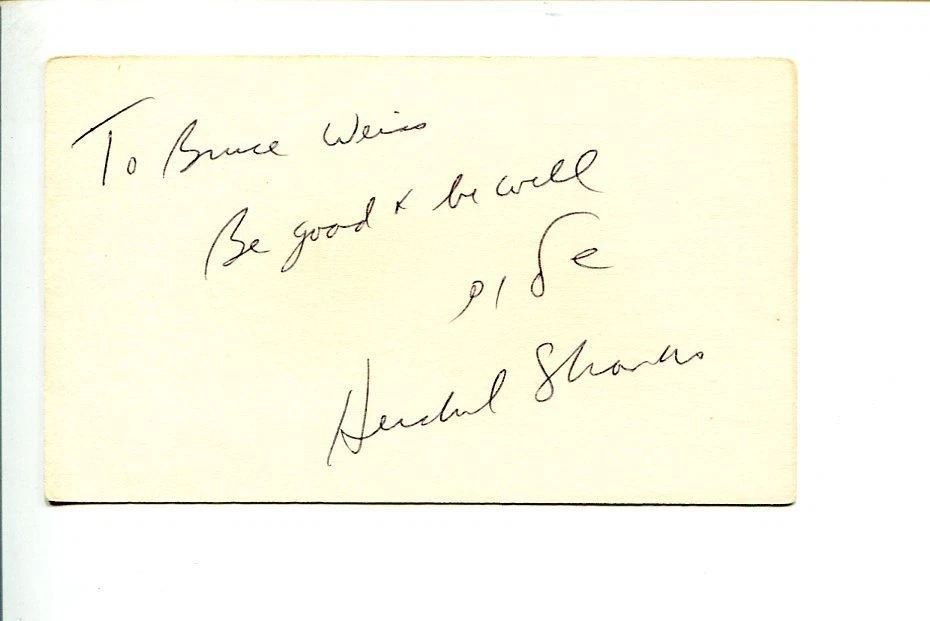 To Bruce Weiss
Be good & be well
שלום
Hershel Shanks